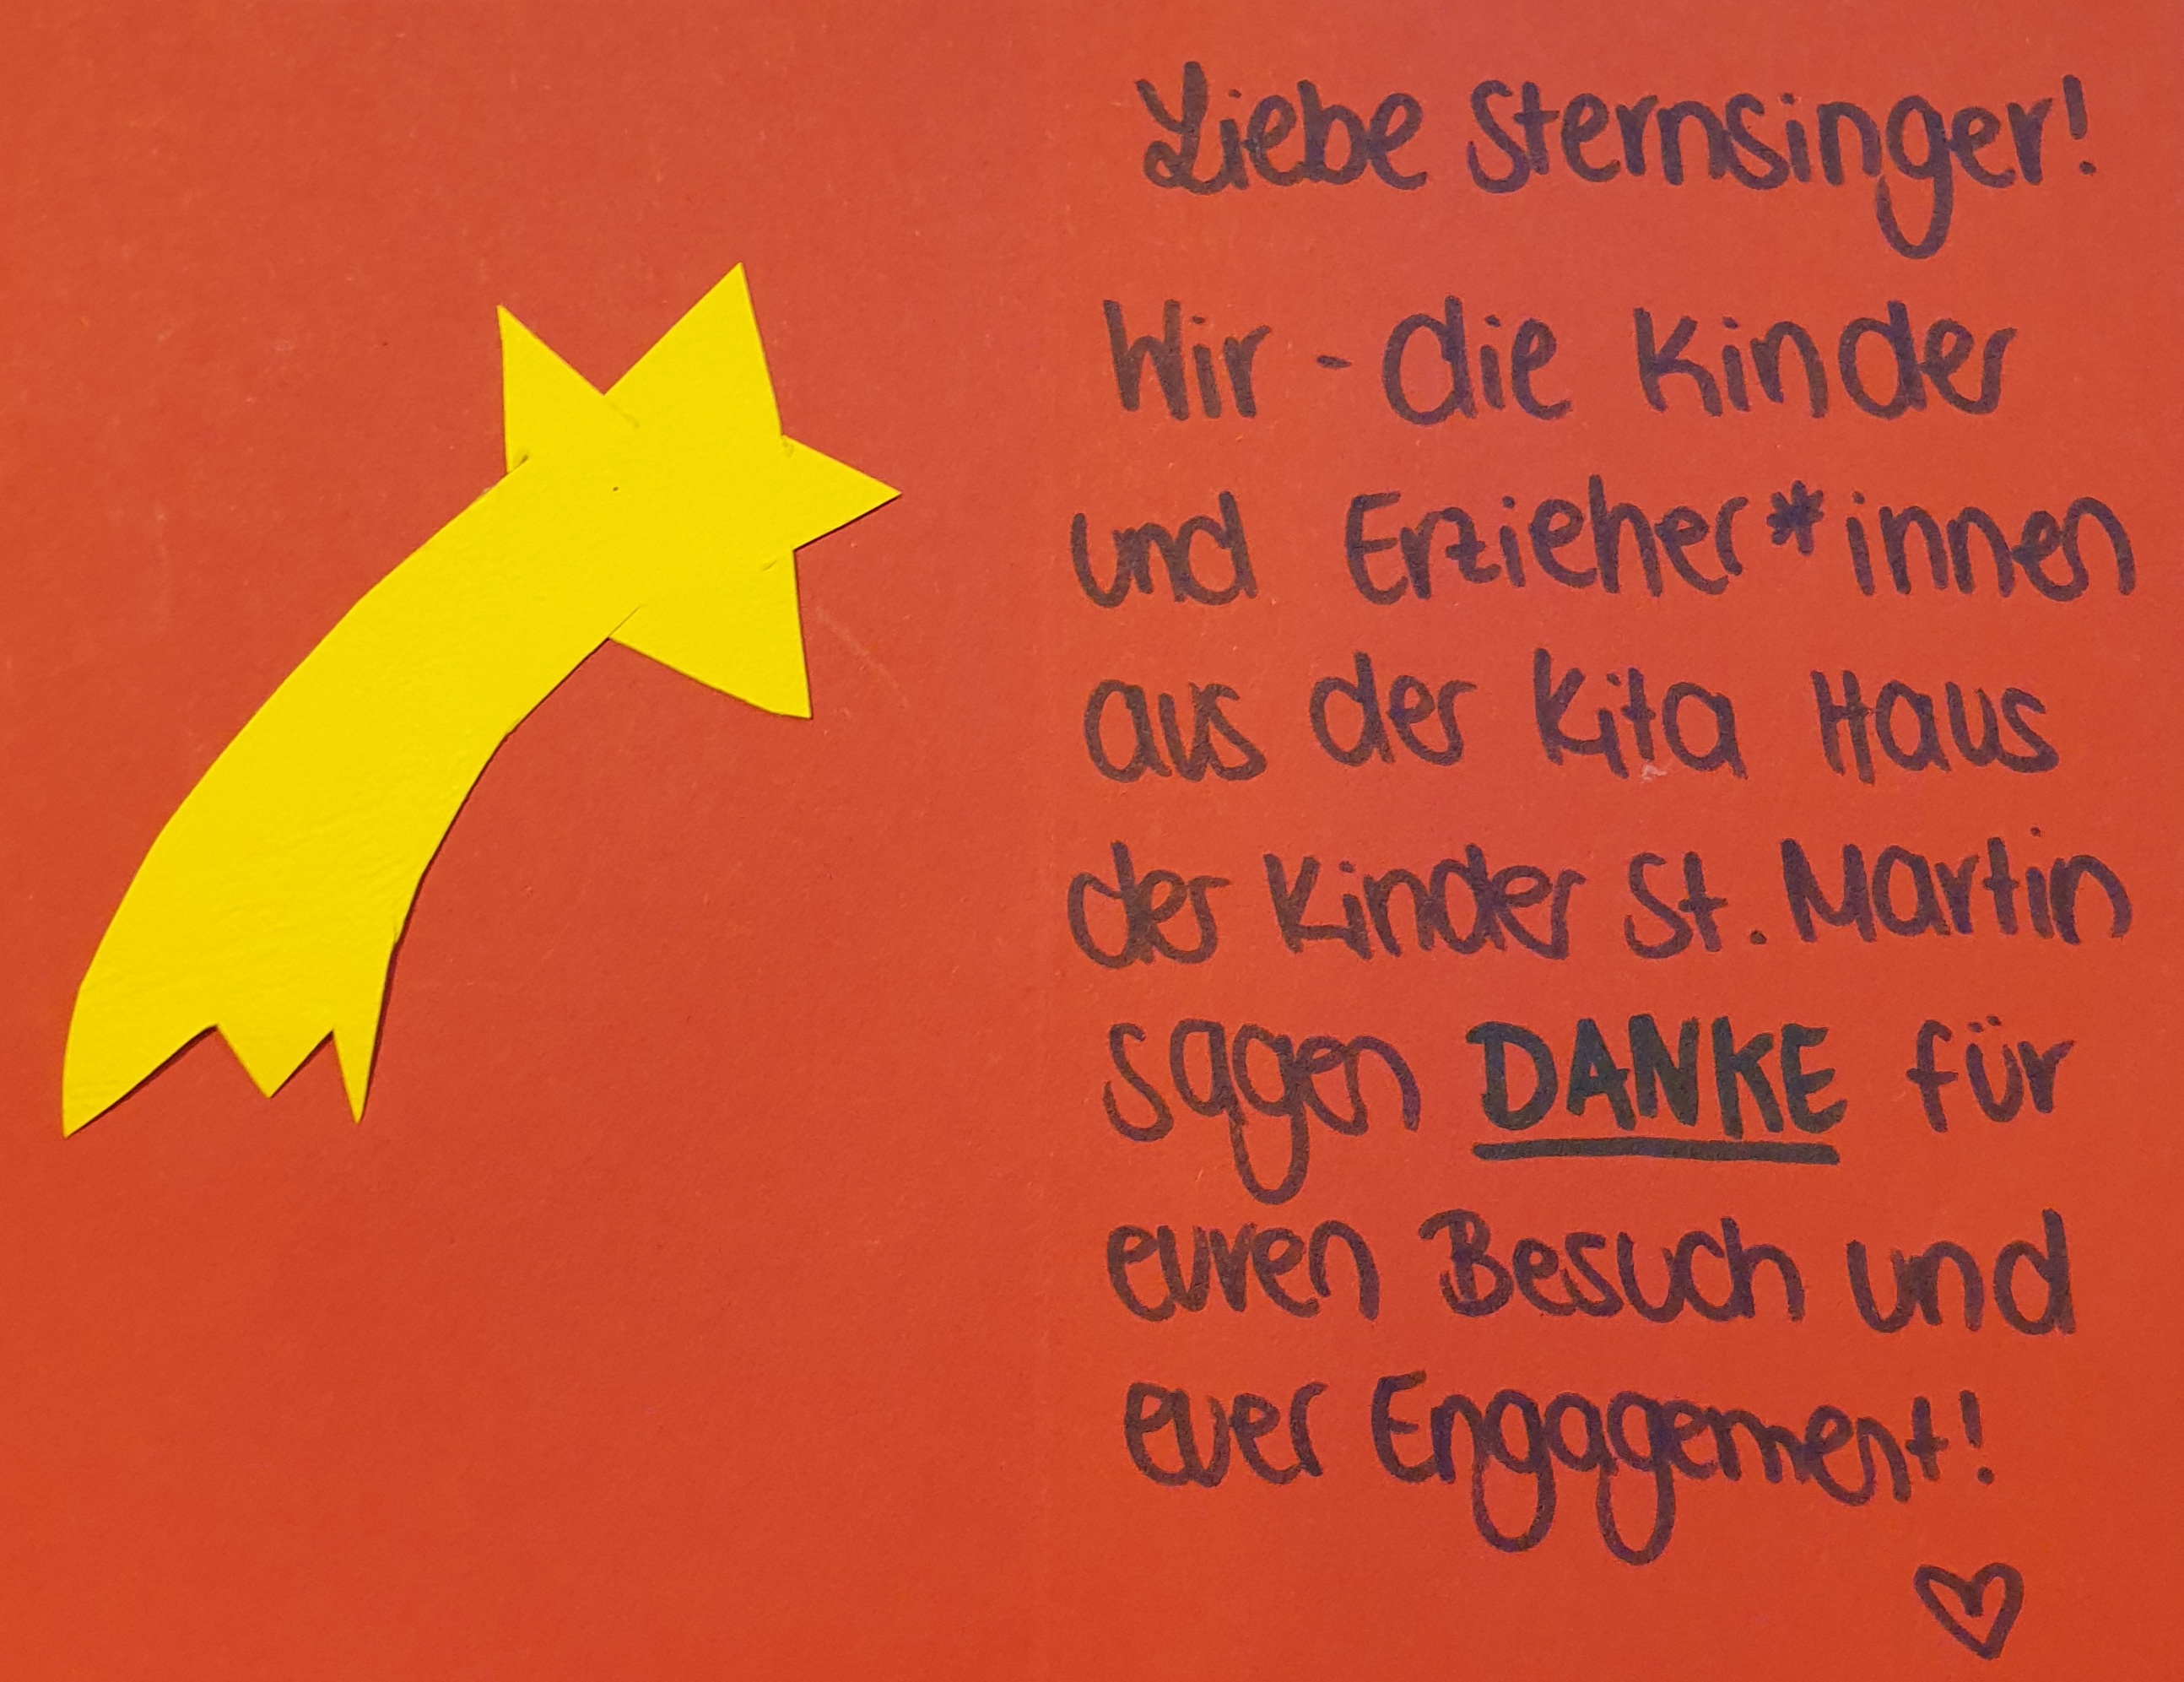 Liebe Sternsinger!
Wir - die Kinder
und Erzieher*innen
aus der Kita Haus
der Kinder St. Martin
sagen DANKE für
euren Besuch und
euer Engagement!